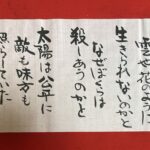 雲や花のように
生きられないのかと
なぜぼくらは
殺しあうのかと
太陽は公平に
敵も味方も
照らしていた